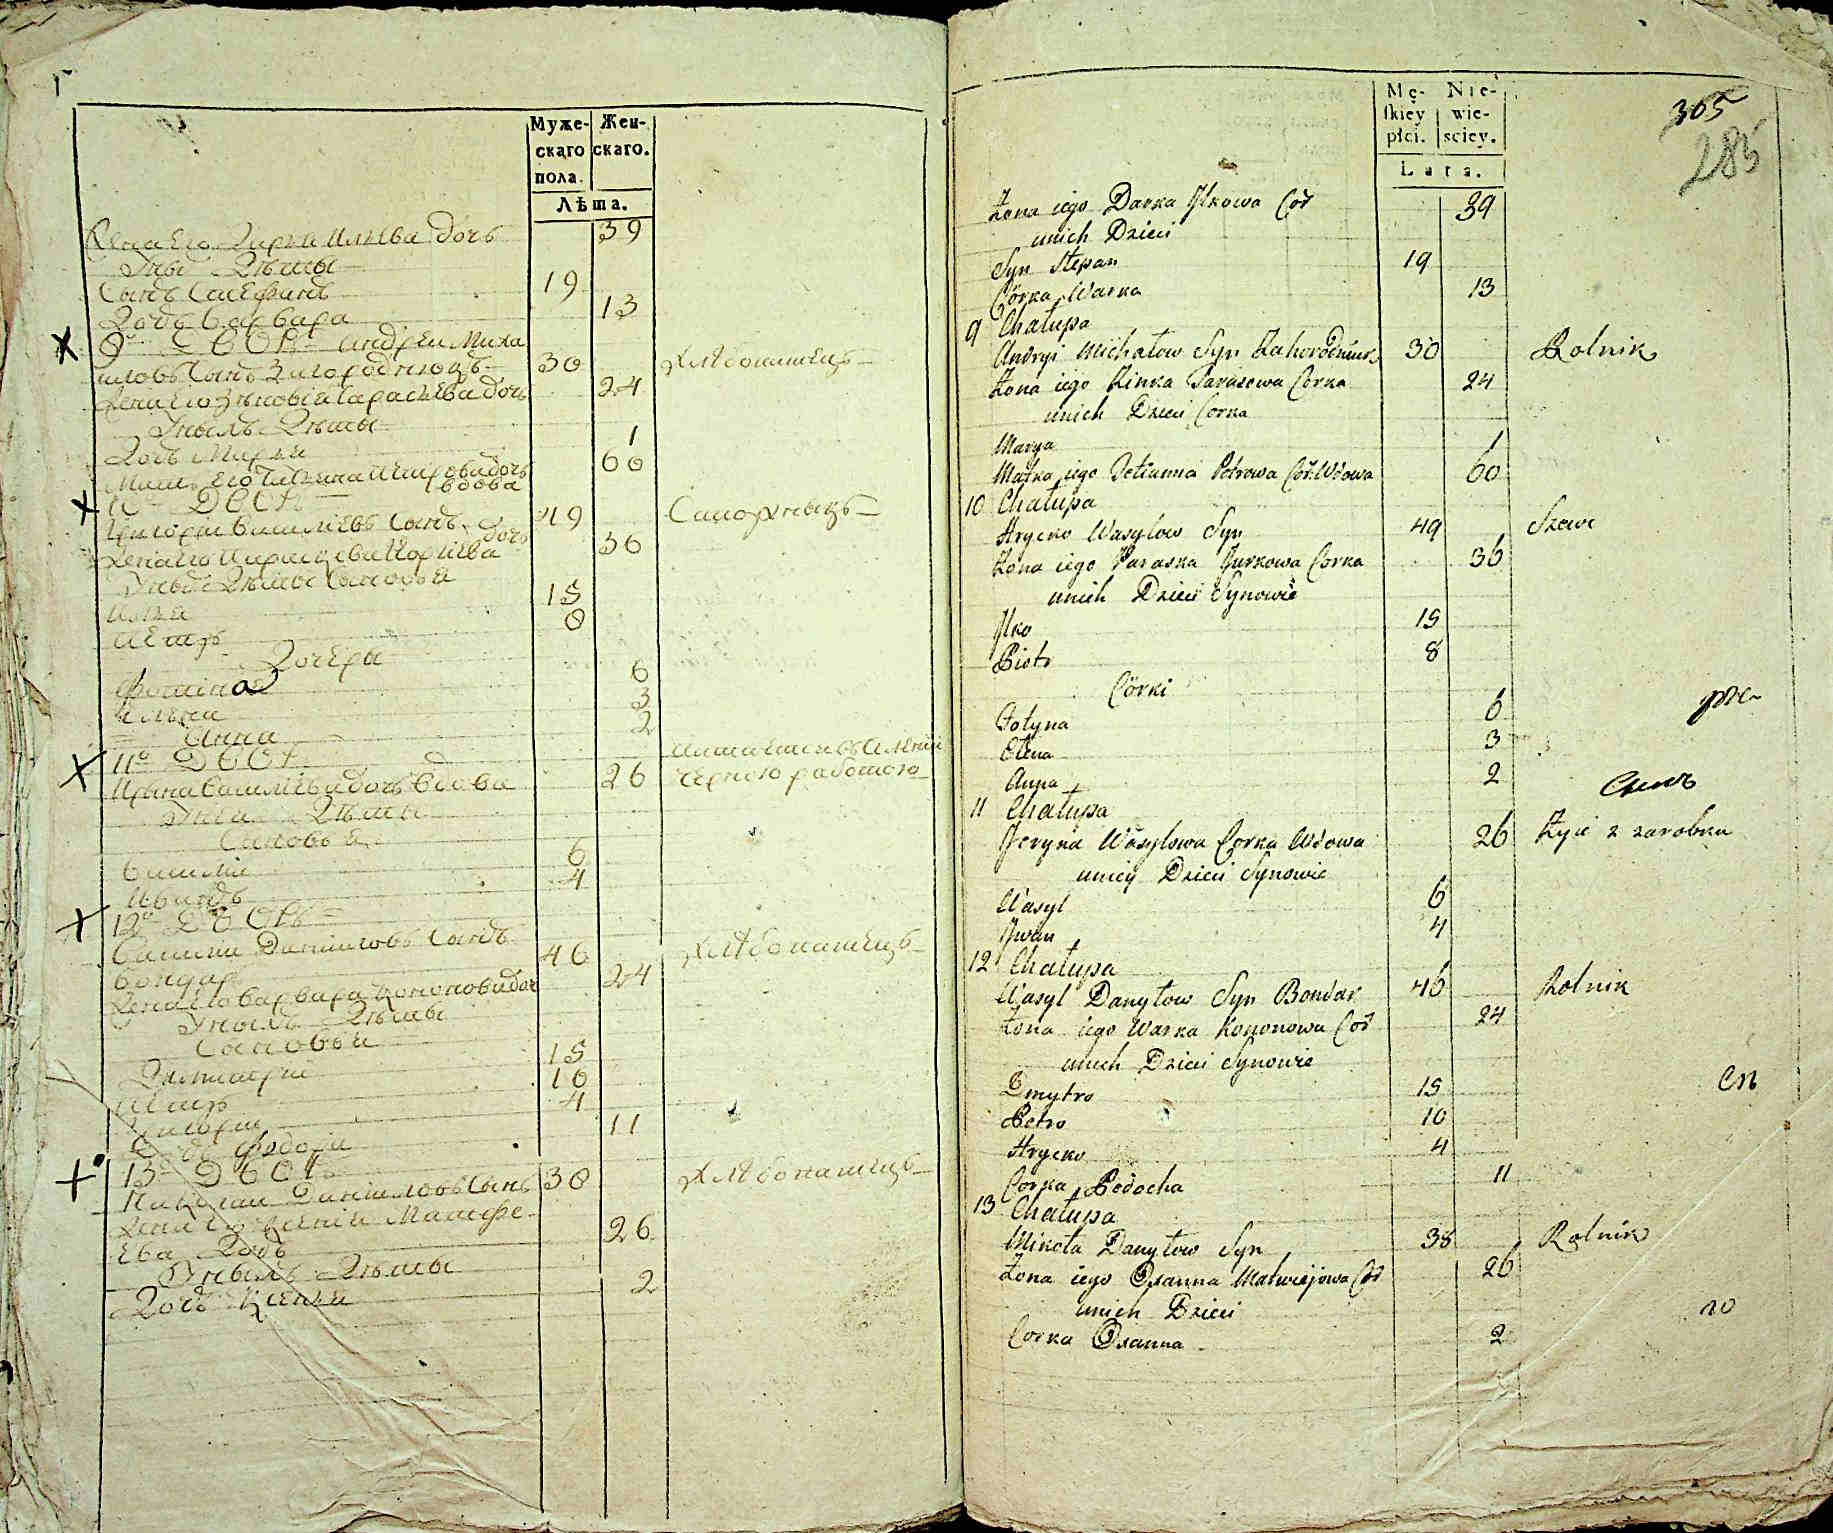 Муже- Жен-
скаго скаго.
пола.
Лѣта.
Жена Его Дарья Ильева дочь 39
Дѣты
Сынъ Стефанъ 19
Дочь Варвара 13
9й ДВОРЪ Андрей Миха
иловъ Сынъ Загороднюкъ 30 Хлѣбопашецъ
Жена Его Зѣновья Тарасьева дочь 24
Унихъ Дѣты
Дочь Марья 1
Мать Его Татияна Петрова дочь 60
вдова
10 ДВОРЪ
Григорій Василіевъ Сынъ 49 Сапожныкъ
Жена Его Параскева Юріева дочь 36
Дѣты Сыновья
Илья 15
Петръ 8
Дочеры
Фотіна 6
Елена 3
Анна 2
11й ДВОРЪ
Ирына Василіева дочь Вдова 26 черною работою
Дѣты
Сыновья
Василій 6
Иванъ 4
12й ДВОРЪ
Василій Даниловъ Сынъ 46 Хлѣбопашецъ
Бондар
Жена Его Варвара Кононова доч 24
Унихъ Дѣты
Сыновья
Димитрій 15
Петръ 10
Григорій 4
Федося 11
13й ДВОРЪ
Николай Даниловъ Сынъ 38 Хлѣбопашецъ
Жена Его Ксенія Матфе
Ева Дочь 26
Унихъ Дѣты
Дочь Ксенья 2
Mę- Nie-
skiey wie-
płci. sciey.
Lata.
305
285
Żona iego Darka Ilkowa Cór 39
unich Dzieci
Syn Stepan 19
Córka Warka 13
9 Chałupa
Andryi Michałow Syn Zahorodniuk 30 Rolnik
Żona iego Zinka Tarasowa Corka 24
unich Dzieci Corka
Marya 1
Matka iego Tetianna Petrowa Cór: Wdowa 60
10 Chałupa
Hrycko Wasylow Syn 49 Szewc
Żona iego Paraska Jurkowa Corka 36
unich Dzieci Synowie
Ilko 15
Piotr 8
Córki
Fotyna 6
Elena 3
Anna 2
11 Chałupa
Jeryna Wasylowa Corka Wdowa 26 Żyie z zarobku
uniey Dzieci Synowie
Wasyl 6
Iwan 4
12 Chałupa
Wasyl Danyłow Syn Bondar 46 Rolnik
Żona iego Warka Kononowa Cór 24
unich Dzieci Synowie
Dmytro 15
Petro 10
Hrycko 4
Corka Fedocha 11
13 Chałupa
Mikoła Danyłow Syn 38 Rolnik
Żona iego Oxanna Matwiejowa Cór 26
unich Dzieci
Corka Oxanna 2